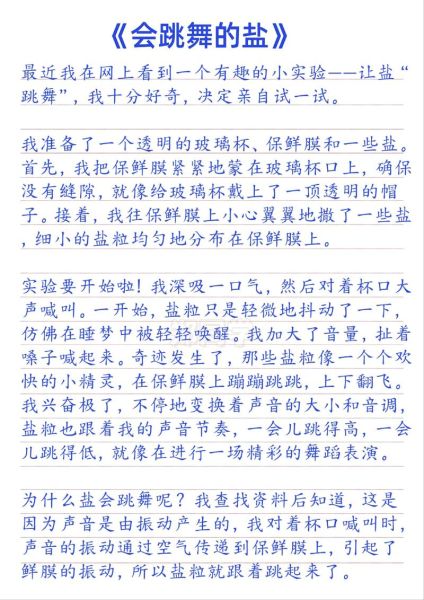 《会跳舞的盐》
最近我在网上看到一个有趣的小实验——让盐“
跳舞”，我十分好奇，决定亲自试一试。
我准备了一个透明的玻璃杯、保鲜膜和一些盐。
首先，我把保鲜膜紧紧地蒙在玻璃杯口上，确保
没有缝隙，就像给玻璃杯戴上了一顶透明的帽
子。接着，我往保鲜膜上小心翼翼地撒了一些盐
，细小的盐粒均匀地分布在保鲜膜上。
实验要开始啦！我深吸一口气，然后对着杯口大
声喊叫。一开始，盐粒只是轻微地抖动了一下，
仿佛在睡梦中被轻轻唤醒。我加大了音量，扯着
嗓子喊起来。奇迹发生了，那些盐粒像一个个欢
快的小精灵，在保鲜膜上蹦蹦跳跳，上下翻飞。
我兴奋极了，不停地变换着声音的大小和音调，
盐粒也跟着我的声音节奏，一会儿跳得高，一会
儿跳得低，就像在进行一场精彩的舞蹈表演。
为什么盐会跳舞呢？我查找资料后知道，这是
因为声音是由振动产生的，我对着杯口喊叫时，
声音的振动通过空气传递到保鲜膜上，引起了
鲜膜的振动，所以盐粒就跟着跳起来了。